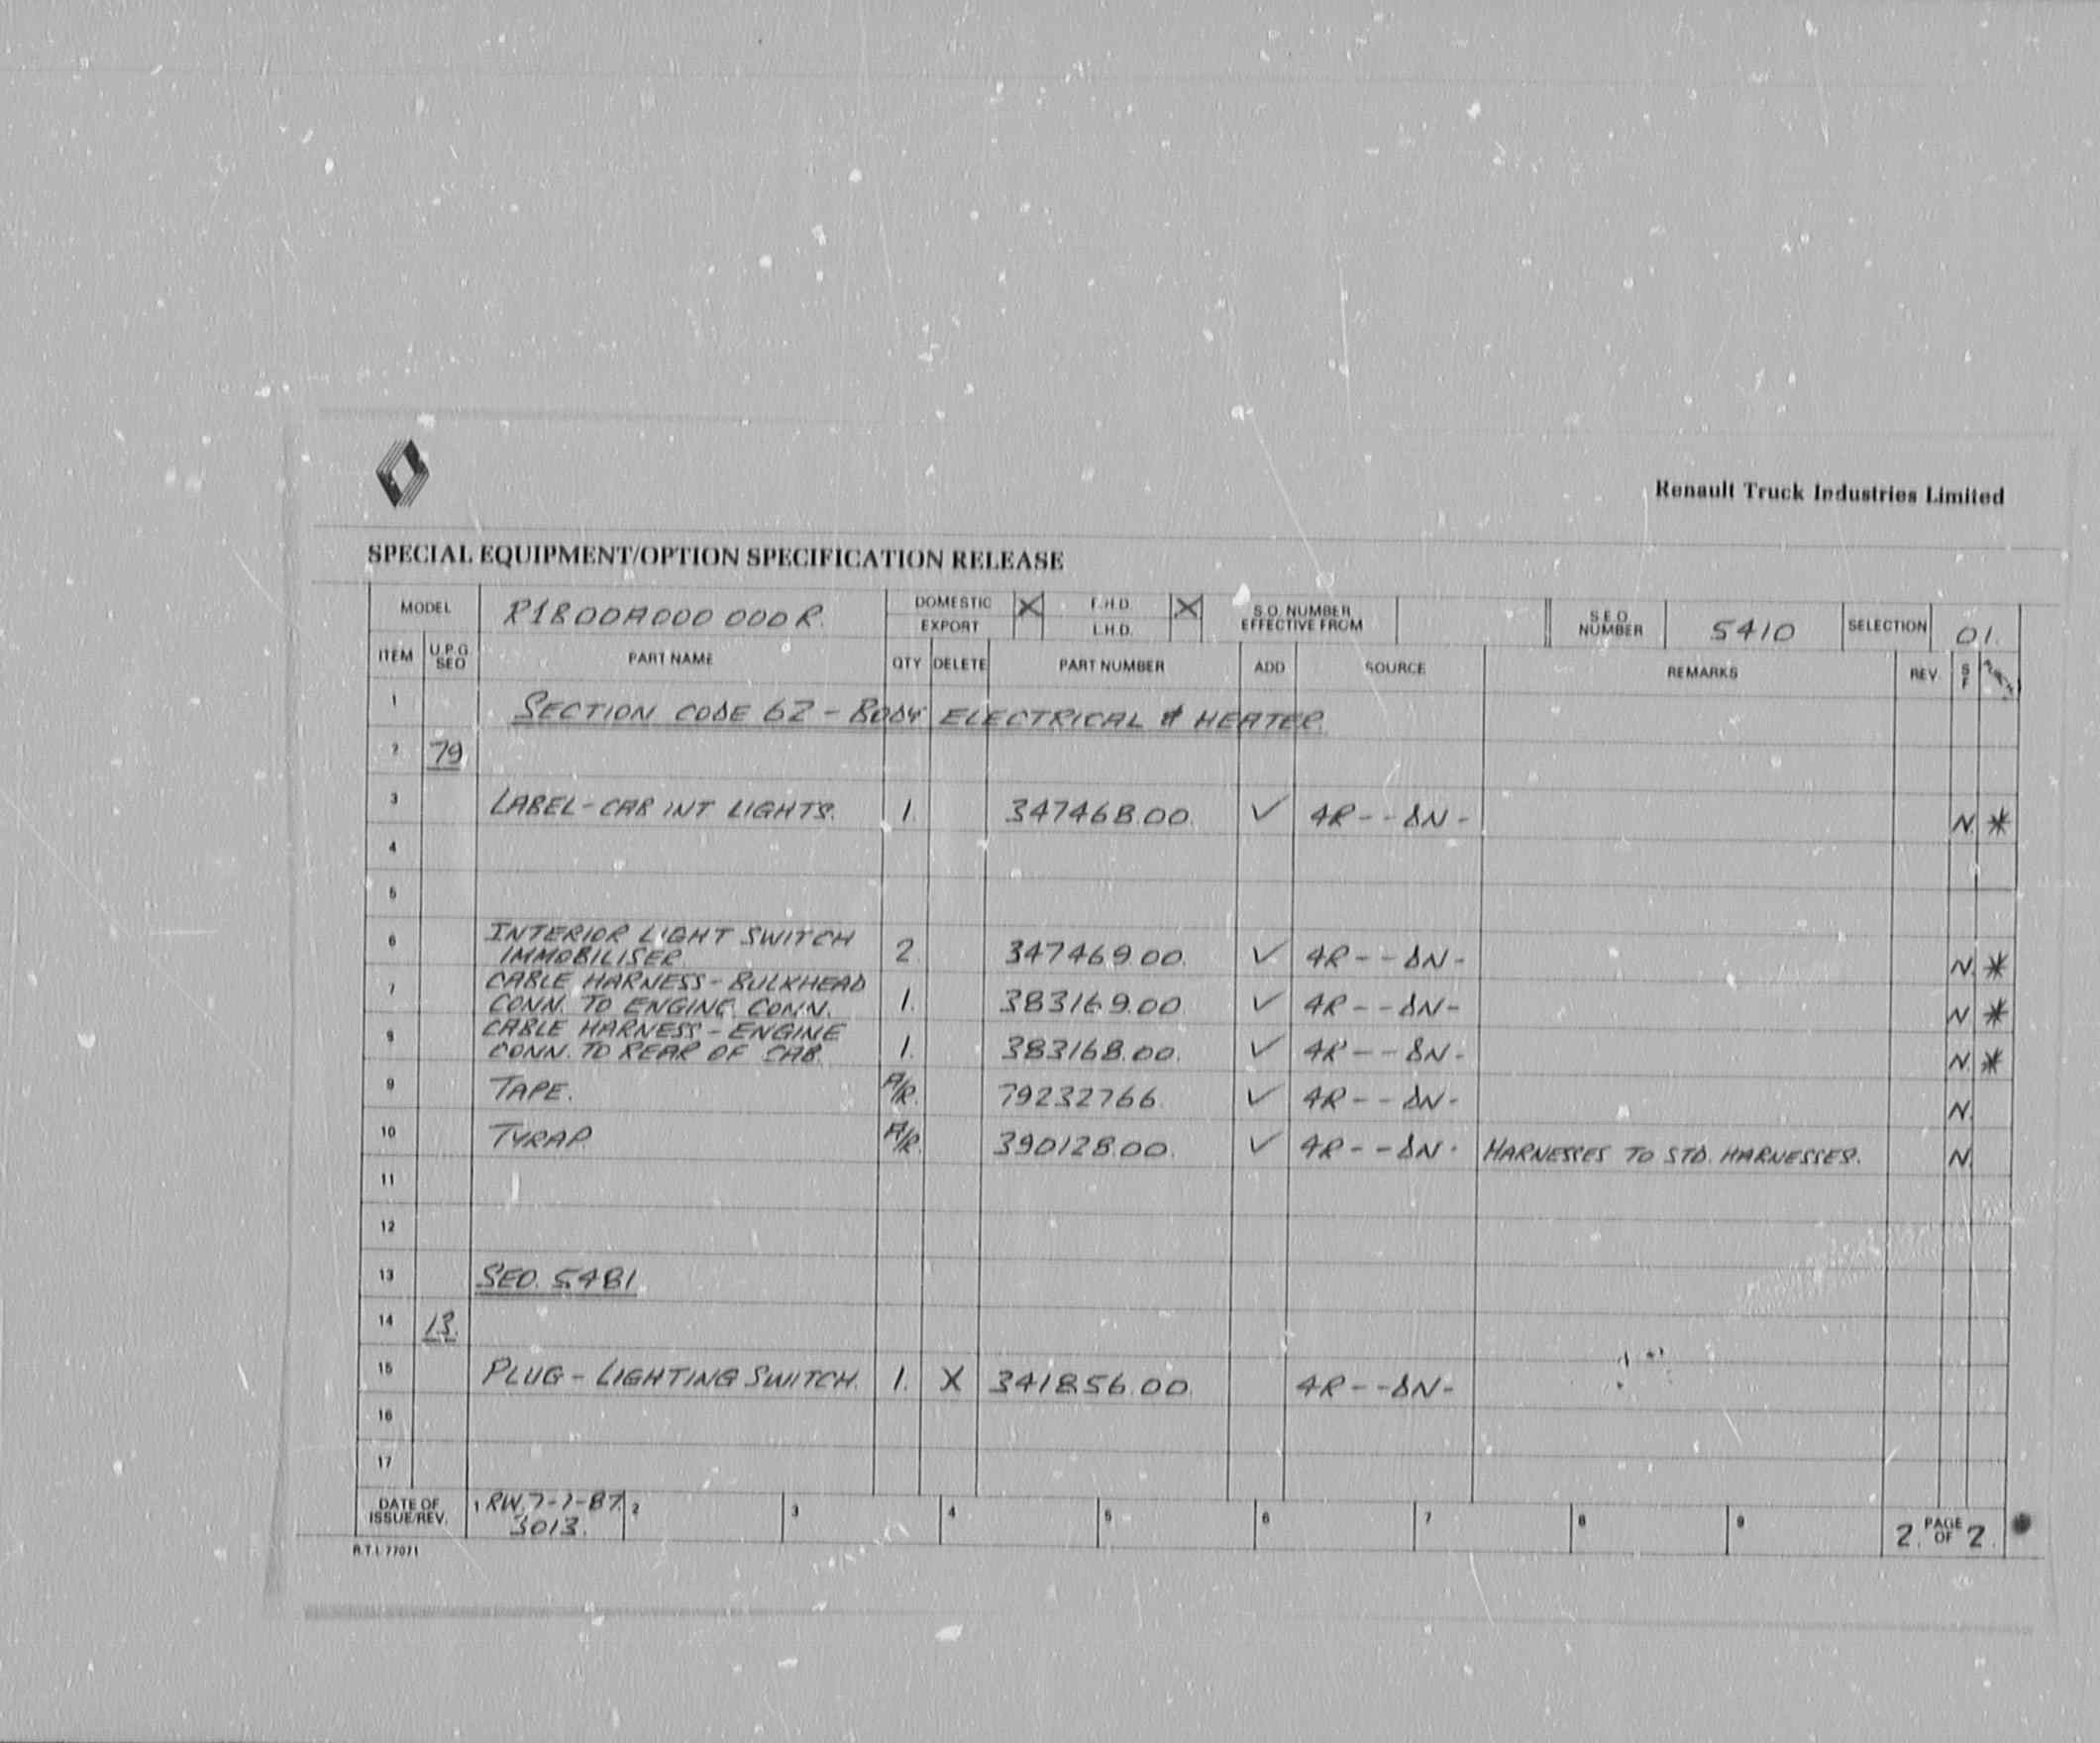 Renault Truck Industries Limited
SPECIAL EQUIPMENT/OPTION SPECIFICATION RELEASE
MODEL R1800A000 000R. DOMESTIC X F.H.D. X S.O. NUMBER EFFECTIVE FROM S.E.O NUMBER 5410 SELECTION 01.
EXPORT L.H.D.
ITEM U.P.G SEO PART NAME QTY DELETE PART NUMBER ADD SOURCE REMARKS REV. S F
1 SECTION CODE 62 - BODY ELECTRICAL & HEATER.
2 79
3 LABEL - CAB INT LIGHTS. 1. 347468.00. ✓ 4R - - DN - N. *
4
5
6 INTERIOR LIGHT SWITCH
IMMOBILISER 2. 347469.00. ✓ 4R - - DN - N. *
7 CABLE HARNESS - BULKHEAD
CONN. TO ENGINE CONN. 1. 383169.00 ✓ 4R - - DN - N *
8 CABLE HARNESS - ENGINE
CONN. TO REAR OF CAB. 1. 383168.00. ✓ 4R - - DN - N. *
9 TAPE. A/R. 79232766. ✓ 4R - - DN - N.
10 TYRAP. A/R. 390128.00. ✓ 4R - - DN - HARNESSES TO STD. HARNESSES. N.
11
12
13 SEO. 5481.
14 13.
15 PLUG - LIGHTING SWITCH. 1. X 341856.00. 4R - - DN -
16
17
DATE OF ISSUE/REV. 1 RW. 7-7-87. 2 3 4 5 6 7 8 9 2. PAGE OF 2.
3013.
R.T.I. 77071